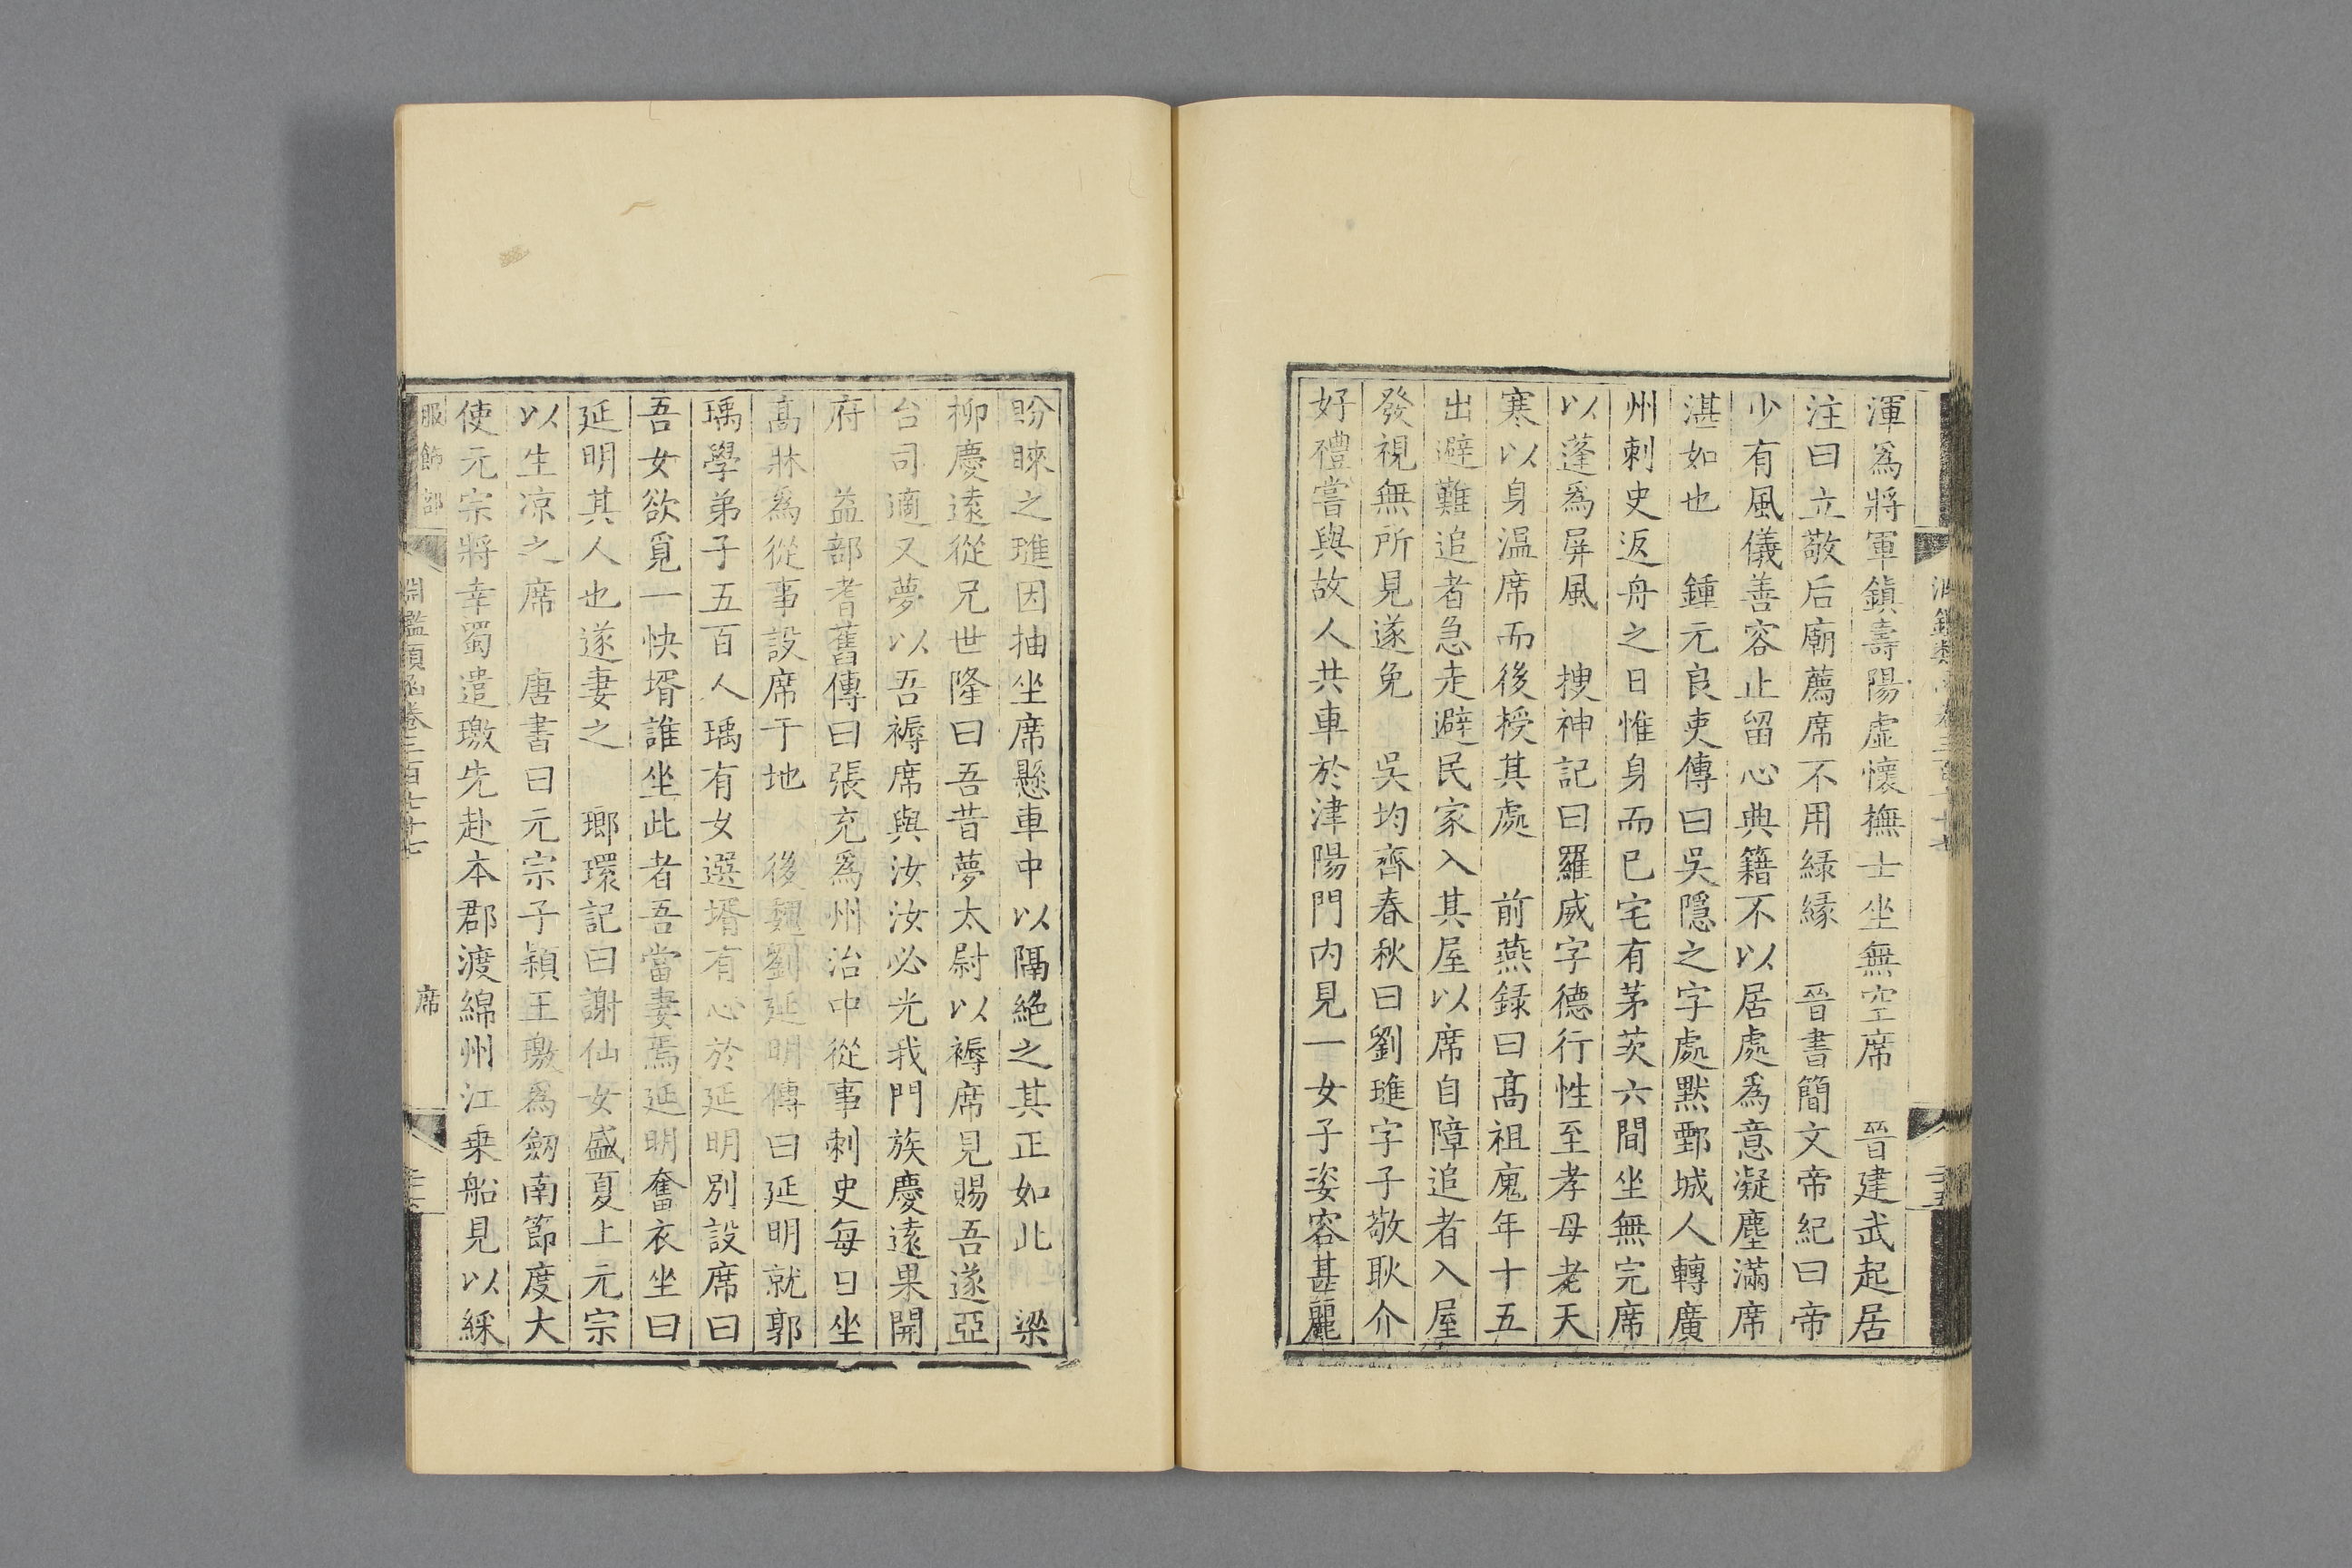 渾爲將軍鎭壽陽虛懷撫士坐無空席　晉建武起居
注曰立敬后廟薦席不用緑縁　晉書簡文帝紀曰帝
少有風儀善容止留心典籍不以居處爲意凝塵滿席
湛如也　鍾元良吏傳曰吳隱之字處黙鄄城人轉廣
州刺史返舟之日惟身而已宅有茅茨六間坐無完席
以蓬爲屏風　搜神記曰羅威字德行性至孝母老天
寒以身温席而後授其處　前燕録曰髙祖廆年十五
出避難追者急走避民家入其屋以席自障追者入屋
發視無所見遂免　吳均齊春秋曰劉璡字子敬耿介
好禮嘗與故人共車於津陽門内見一女子姿容甚麗
盼睞之璡因抽坐席懸車中以隔絶之其正如此　梁
柳慶遠從兄世隆曰吾昔夢太尉以褥席見賜吾遂亞
台司適又夢以吾褥席與汝汝必光我門族慶遠果開
府　益部耆舊傳曰張充爲州治中從事刺史每日坐
髙牀爲從事設席于地　後魏劉延明傳曰延明就郭
瑀學弟子五百人瑀有女選壻有心於延明别設席曰
吾女欲覓一快壻誰坐此者吾當妻焉延明奮衣坐曰
延明其人也遂妻之　瑯環記曰謝仙女盛夏上元宗
以生凉之席　唐書曰元宗子穎王璬爲劒南節度大
使元宗將幸蜀遣璬先赴本郡渡綿州江乗船見以綵
服飾部
淵鑑類函卷三百七十七
席